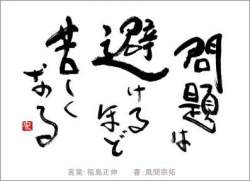 問題は
避けるほど
苦しく
なる
言葉:福島正伸　書:風間宗拓